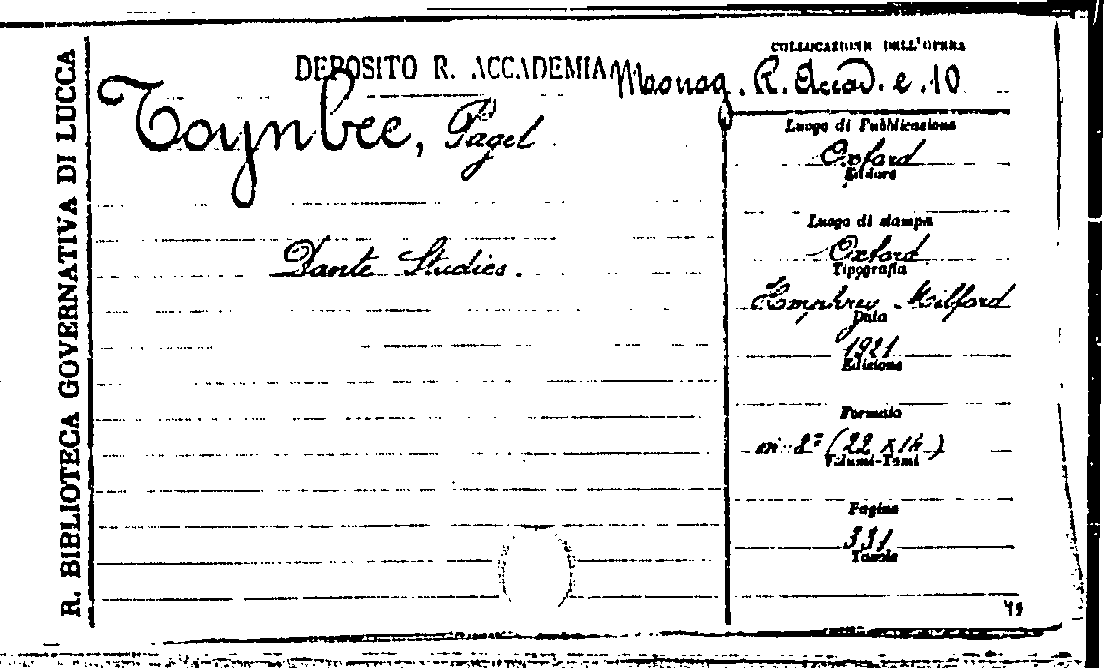 R. BIBLIOTECA GOVERNATIVA DI LUCCA
DEPOSITO R. ACCADEMIA
COLLOCAZIONE DELL'OPERA
R. Accad. e. 10
Toynbee, Paget
Dante Studies.
Luogo di Pubblicazione
Oxford
Editore
Luogo di stampa
Oxford
Tipografia
Humphrey Milford
Data
1921
Edizione
Formato
in-8° (22 x 14)
Volumi-Tomi
Pagine
331
Tavole